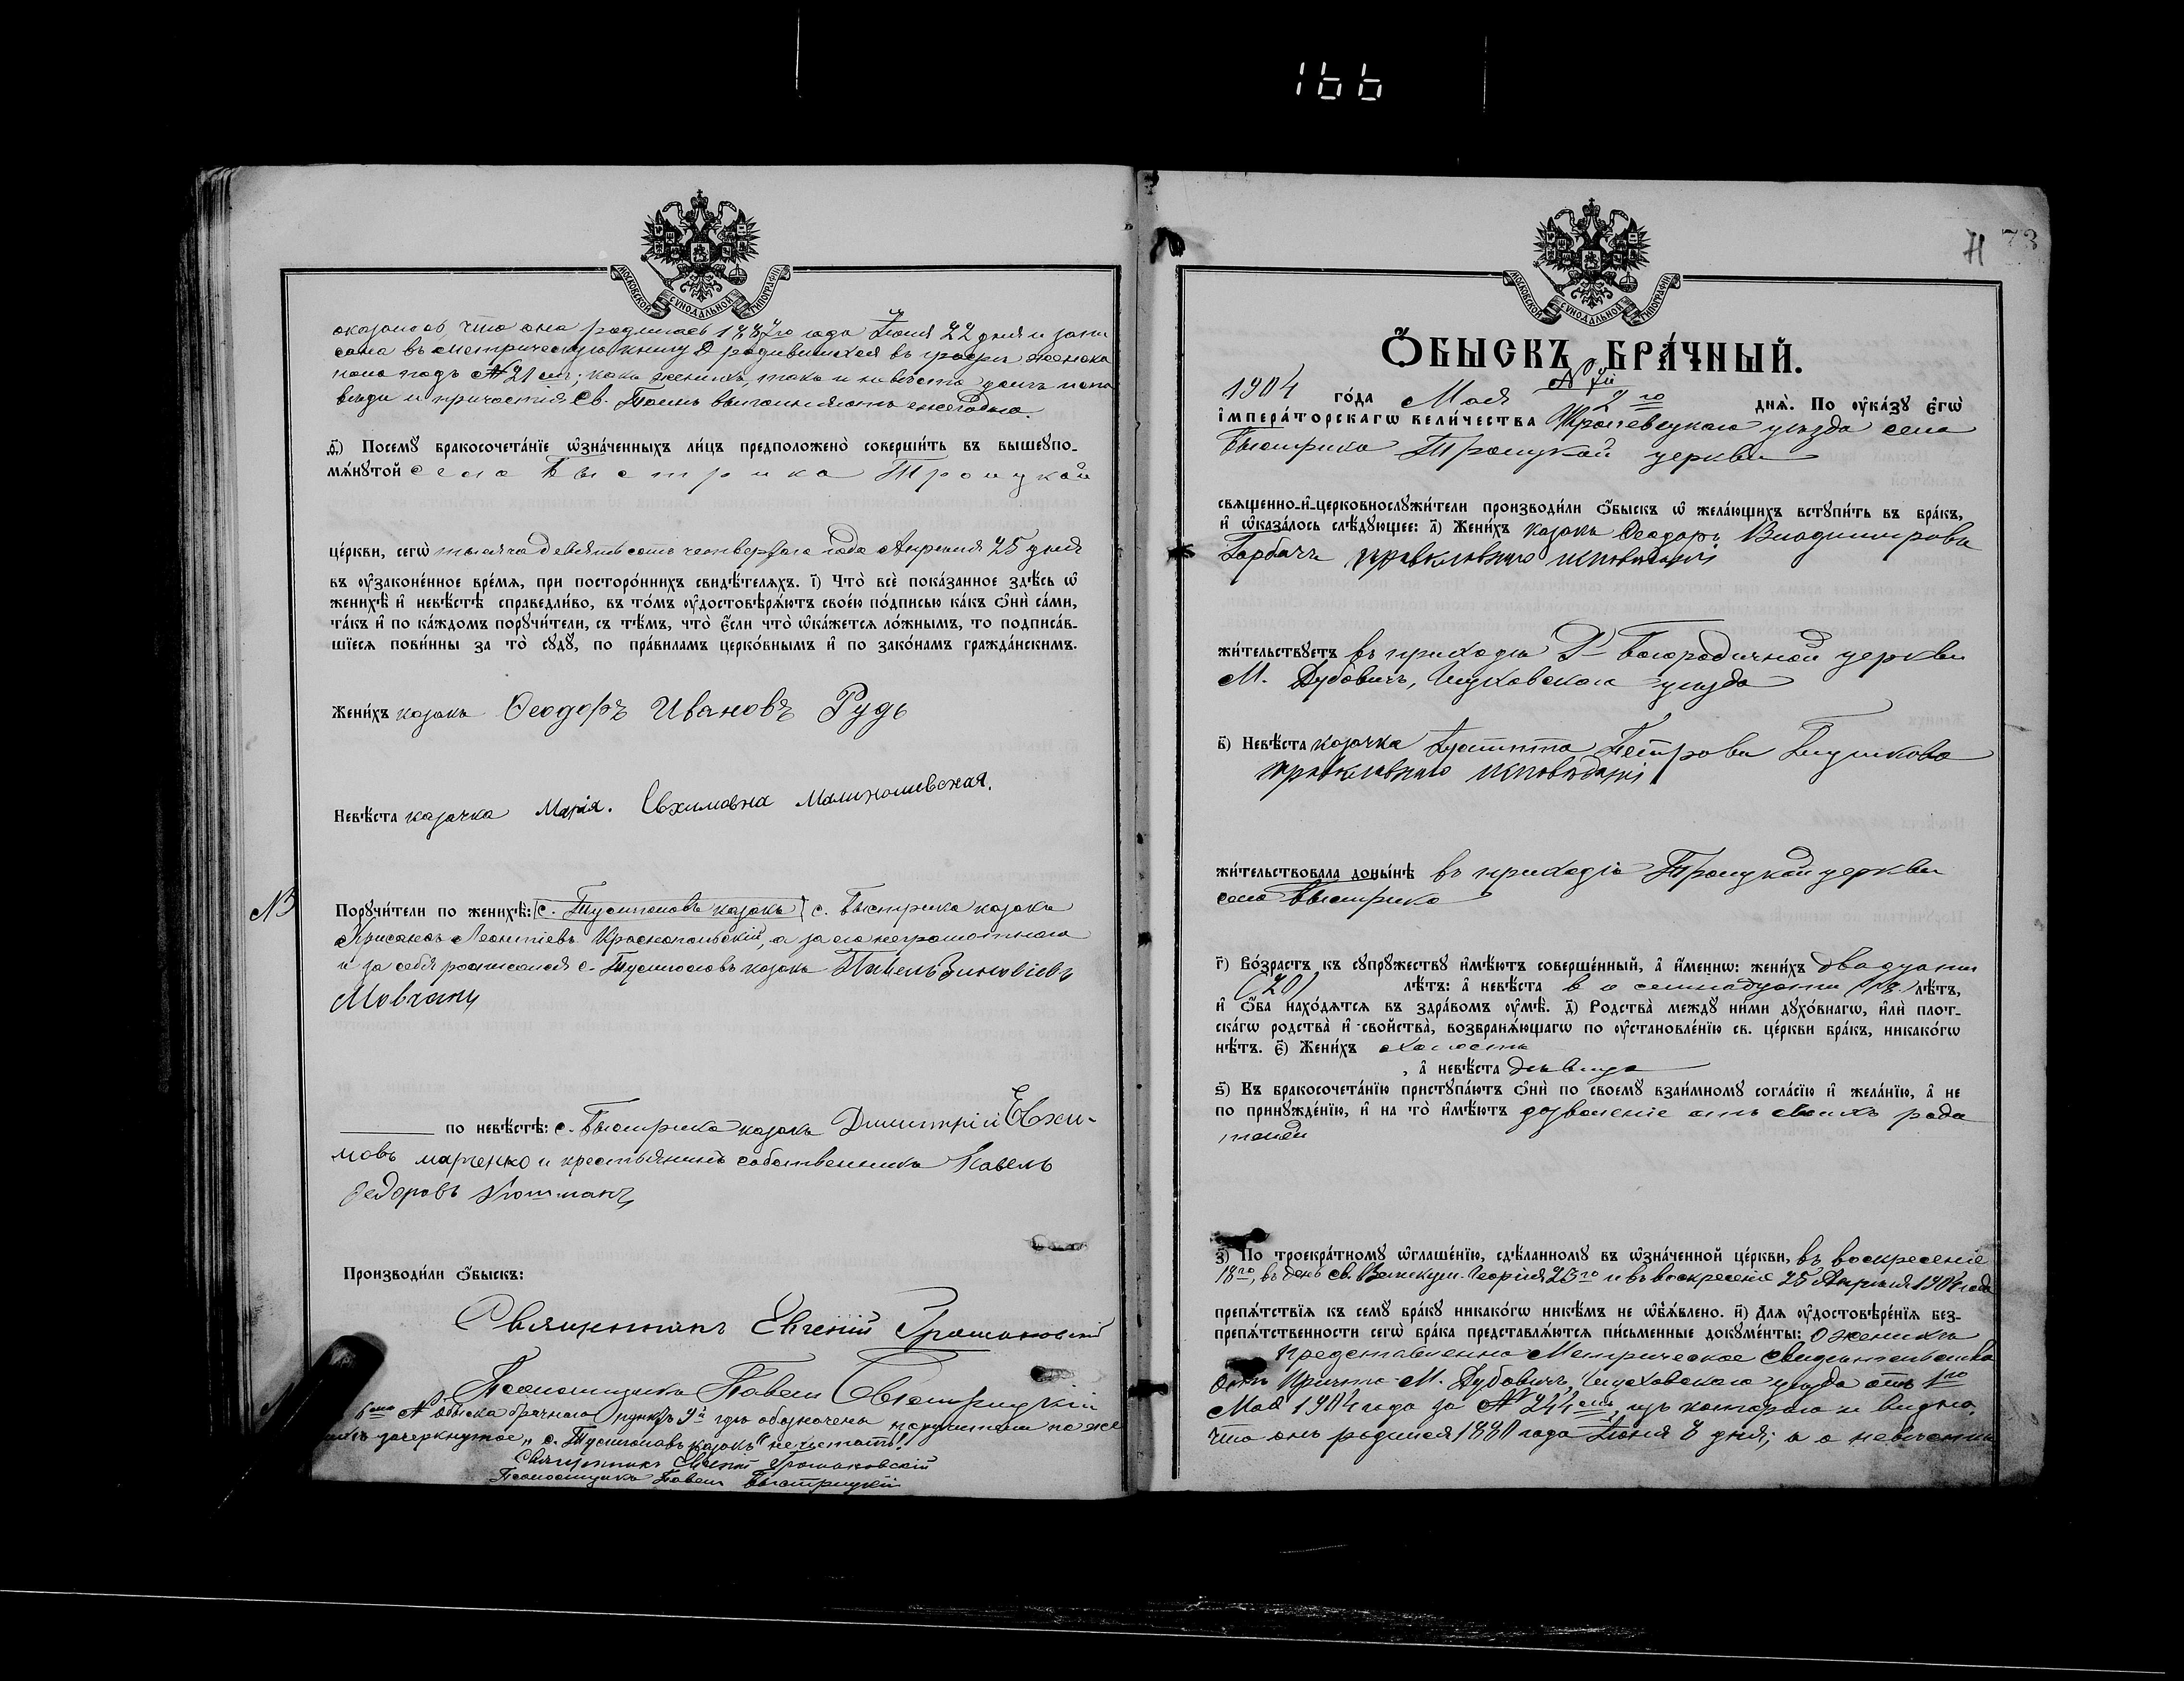 166
МОСКОВСКОЙ СѴНОДАЛЬНОЙ ТИПОГРАФІИ
оказалось что она родилась 1887го года Іюня 22 дня и запи
сана въ метрическую книгу о родившихся въ графѣ женска
пола подъ № 21 емъ; какъ женихъ, такъ и невѣста
и причастія Св. Таинъ выполняютъ ежегодно.
Посемꙋ бракосочета́нїе ѡ҆зна́ченныхъ ли́цъ предположено̀ соверши́ть въ вышеꙋпо-
мѧ́нꙋтой села Быстрика Троицкой
це́ркви, сегѡ̀ тысяча девятьсотъ четвертаго года Апрѣля 25 дня
въ ᲂу҆законе́нное вре́мѧ, при посторо́ннихъ свидѣ́телѧхъ. і҃) Что̀ всѐ пока́занное здѣ́сь ѡ҆
женихѣ̀ и҆ невѣ́стѣ справедли́во, въ то́мъ ᲂу҆достовѣрѧ́ютъ свое́ю по́дписью ка́къ ѻ҆нѝ са́ми,
та́къ и҆ по ка́ждомъ порꙋчи́тели, съ тѣ́мъ, что̀ є҆́сли что̀ ѡ҆ка́жетсѧ ло́жнымъ, то подписа́в-
шїесѧ пови́нны за то̀ сꙋдꙋ̀, по пра́виламъ церко́внымъ и҆ по зако́намъ гражда́нскимъ.
Жени́хъ казакъ Ѳеодоръ Ивановъ Рудь
Невѣ́ста казачка Марія. Евхимовна
NB
Порꙋчи́тели по женихѣ̀: с. казакъ с. Быстрика казакъ
Леонтіевъ Краснопольскій, а за его неграмотнаго
и за себя росписался с. казакъ Зиновіевъ
Мовчанъ
по невѣ́стѣ: с. Быстрика казакъ Димитрій Евхи-
мовъ марченко и крестьянинъ собственникъ Павелъ
Федоровъ
Производи́ли ѻ҆́быскъ:
Священникъ Евгеній Громаковскій
Псаломщикъ Павелъ Быстрицкій
№ Обыска брачнаго пунктъ гдѣ обозначены поручители по же
зачеркнутое „с. казакъ" не читать!
Священникъ Евгеній Громаковскій
Псаломщикъ Павелъ Быстрицкій
71 73
МОСКОВСКОЙ СѴНОДАЛЬНОЙ ТИПОГРАФІИ
Ѻ҆́БЫСКЪ БРА́ЧНЫЙ.
№
1904 го́да Мая 2го днѧ̀. По ᲂу҆ка́зꙋ є҆гѡ̀
і҆мпера́торскагѡ вели́чества Кролевецкаго уѣзда села
Быстрика Троицкой церкви
свѧщенно-и҆-церковнослꙋжи́тели производи́ли ѻ҆́быскъ ѡ҆ жела́ющихъ встꙋпи́ть въ бра́къ,
и҆ ѡ҆каза́лось слѣ́дꙋющее: а҃) Жени́хъ казакъ Ѳеодоръ Владиміровъ
Горбачъ православнаго исповѣданія
жи́тельствꙋетъ въ приходѣ Р-Богородичной церкви
М. Дубовичъ, Глуховскаго уѣзда
в҃) Невѣ́ста казачка Петрова Глушкова
православнаго исповѣданія
жи́тельствовала доны́нѣ въ приходѣ Троицкой церкви
села Быстрика
г҃) Во́зрастъ къ сꙋпрꙋ́жествꙋ и҆мѣ́ютъ соверше́нный, а҆ и҆́меннѡ: жени́хъ двадцати
(20) лѣ́тъ: а҆ невѣ́ста лѣ́тъ,
и҆ ѻ҆́ба нахо́дѧтсѧ въ здра́вомъ ᲂу҆мѣ̀. д҃) Родства̀ междꙋ ни́ми дꙋхо́внагѡ, и҆лѝ плот-
ска́гѡ родства̀ и҆ свойства̀, возбранѧ́ющагѡ по ᲂу҆становле́нїю св. це́ркви бра́къ, никако́гѡ
нѣ́тъ. є҃) Жени́хъ холостъ
, а҆ невѣ́ста дѣвица
ѕ҃) Къ бракосочета́нїю пристꙋпа́ютъ ѻ҆нѝ по своемꙋ̀ взаи́мномꙋ согла́сїю и҆ жела́нїю, а҆ не
по принꙋжде́нїю, и҆ на то̀ и҆мѣ́ютъ дозволеніе отъ своихъ роди
телей
з҃) По троекра́тномꙋ ѡ҆глаше́нїю, сдѣ́ланномꙋ въ ѡ҆зна́ченной це́ркви, въ воскресеніе
18го, въ день св. Великом. Георгія 23го и въ воскресеніе 25 Апрѣля 1904 года
препѧ́тствїѧ къ семꙋ̀ бра́кꙋ никако́гѡ никѣ́мъ не ѡ҆б̾ѧ́влено. и҃) Длѧ̀ ᲂу҆достовѣре́нїѧ без-
препѧ́тственности сегѡ̀ бра́ка представлѧ́ютсѧ пи́сьменные докꙋме́нты: О женихѣ
представлено Метрическое свидѣтельство
отъ Причта М. Дубовичъ, Глуховскаго уѣзда отъ 1го
Мая 1904 года за № 244, изъ котораго и видно,
что онъ родился года Іюня 8 дня; а о невѣстѣ